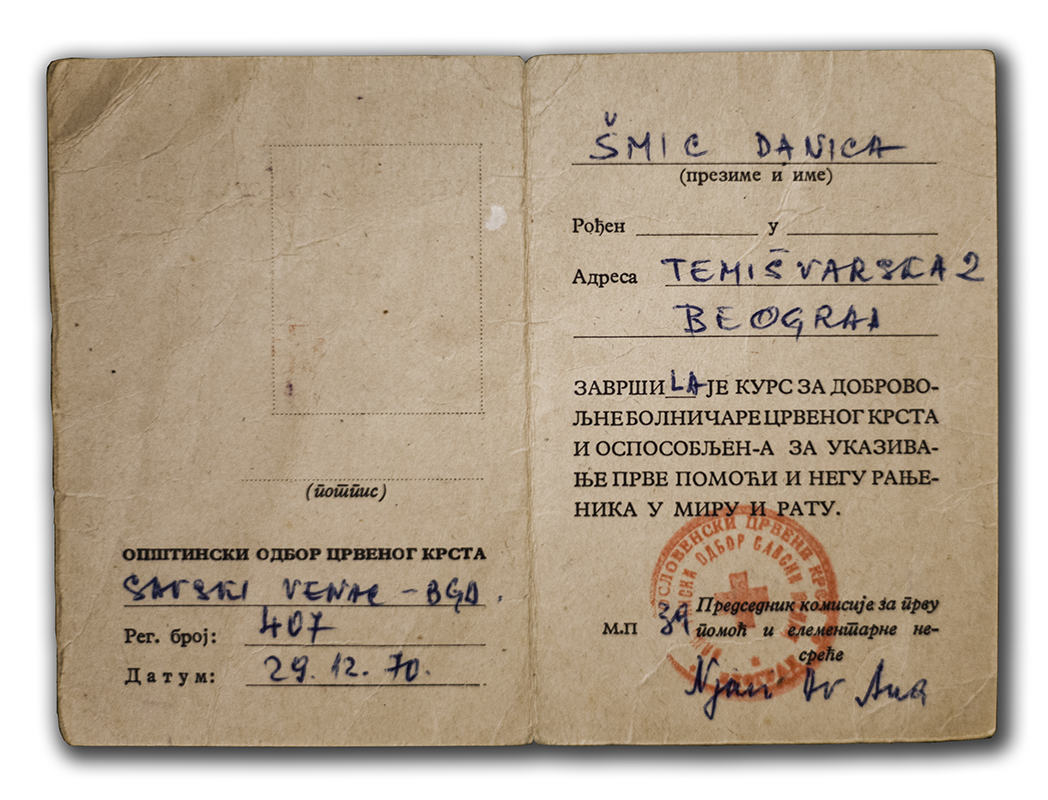 (потпис)
ОПШТИНСКИ ОДБОР ЦРВЕНОГ КРСТА
SAVSKI VENAC – BGD.
Рег. број: 407
Датум: 29. 12. 70.
ŠMIC DANICA
(презиме и име)
Рођен у
Адреса TEMIŠVARSKA 2
BEOGRAD
ЗАВРШИ LA ЈЕ КУРС ЗА ДОБРОВО-
ЉНЕ БОЛНИЧАРЕ ЦРВЕНОГ КРСТА
И ОСПОСОБЉЕН-А ЗА УКАЗИВА-
ЊЕ ПРВЕ ПОМОЋИ И НЕГУ РАЊЕ-
НИКА У МИРУ И РАТУ.
ЦРВЕНИ КРСТ
ОДБОР САВСКИ
Председник комисије за прву
М.П за помоћ и елементарне не-
среће